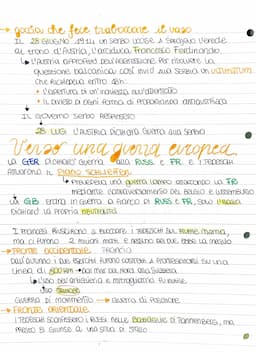 → goccia che fece traboccare il vaso
IL 28 GIUGNO 1914 un serbo uccise a Sarajevo l'erede
al trono d'Austria, l'arciduca Francesco Ferdinando.
↳ L'Austria approfittò dell'aggressione per risolvere la
questione balcanica così inviò alla Serbia un ULTIMATUM
che richiedeva entro 48h:
• L'apertura di un'inchiesta sull'attentato
• IL divieto di ogni forma di propaganda antiaustriaca
IL Governo serbo
28 LUG L'Austria dichiara guerra alla Serbia
Verso una guerra europea
La GER dichiarò guerra alla RUSS e FR e i tedeschi
attuarono il PIANO SCHLIEFFEN
↳ Prevedeva una guerra lampo attaccando la FR
mediante l'attraversamento del Belgio e Lussemburgo
La GB entra in guerra a fianco di RUSS e FR, solo l'Italia
dichiarò la propria neutralità
I francesi riuscirono a bloccare i tedeschi sul fiume Marna,
ma ci furono 2 milioni morti e nessuno dei due ebbe la meglio
→ FRONTE OCCIDENTALE FRANCIA
dall'autunno i due eserciti furono costretti a fronteggiarsi su una
linea di 800 km → dal mar del Nord alla Svizzera
↳ L'uso dell'artiglieria e mitragliatrici fu inutile
uso trincee
guerra di movimento → guerra di posizione
→ FRONTE ORIENTALE
I tedeschi sconfissero i russi nelle battaglie di Tannenberg, ma
presto si giunse a una situa di stallo